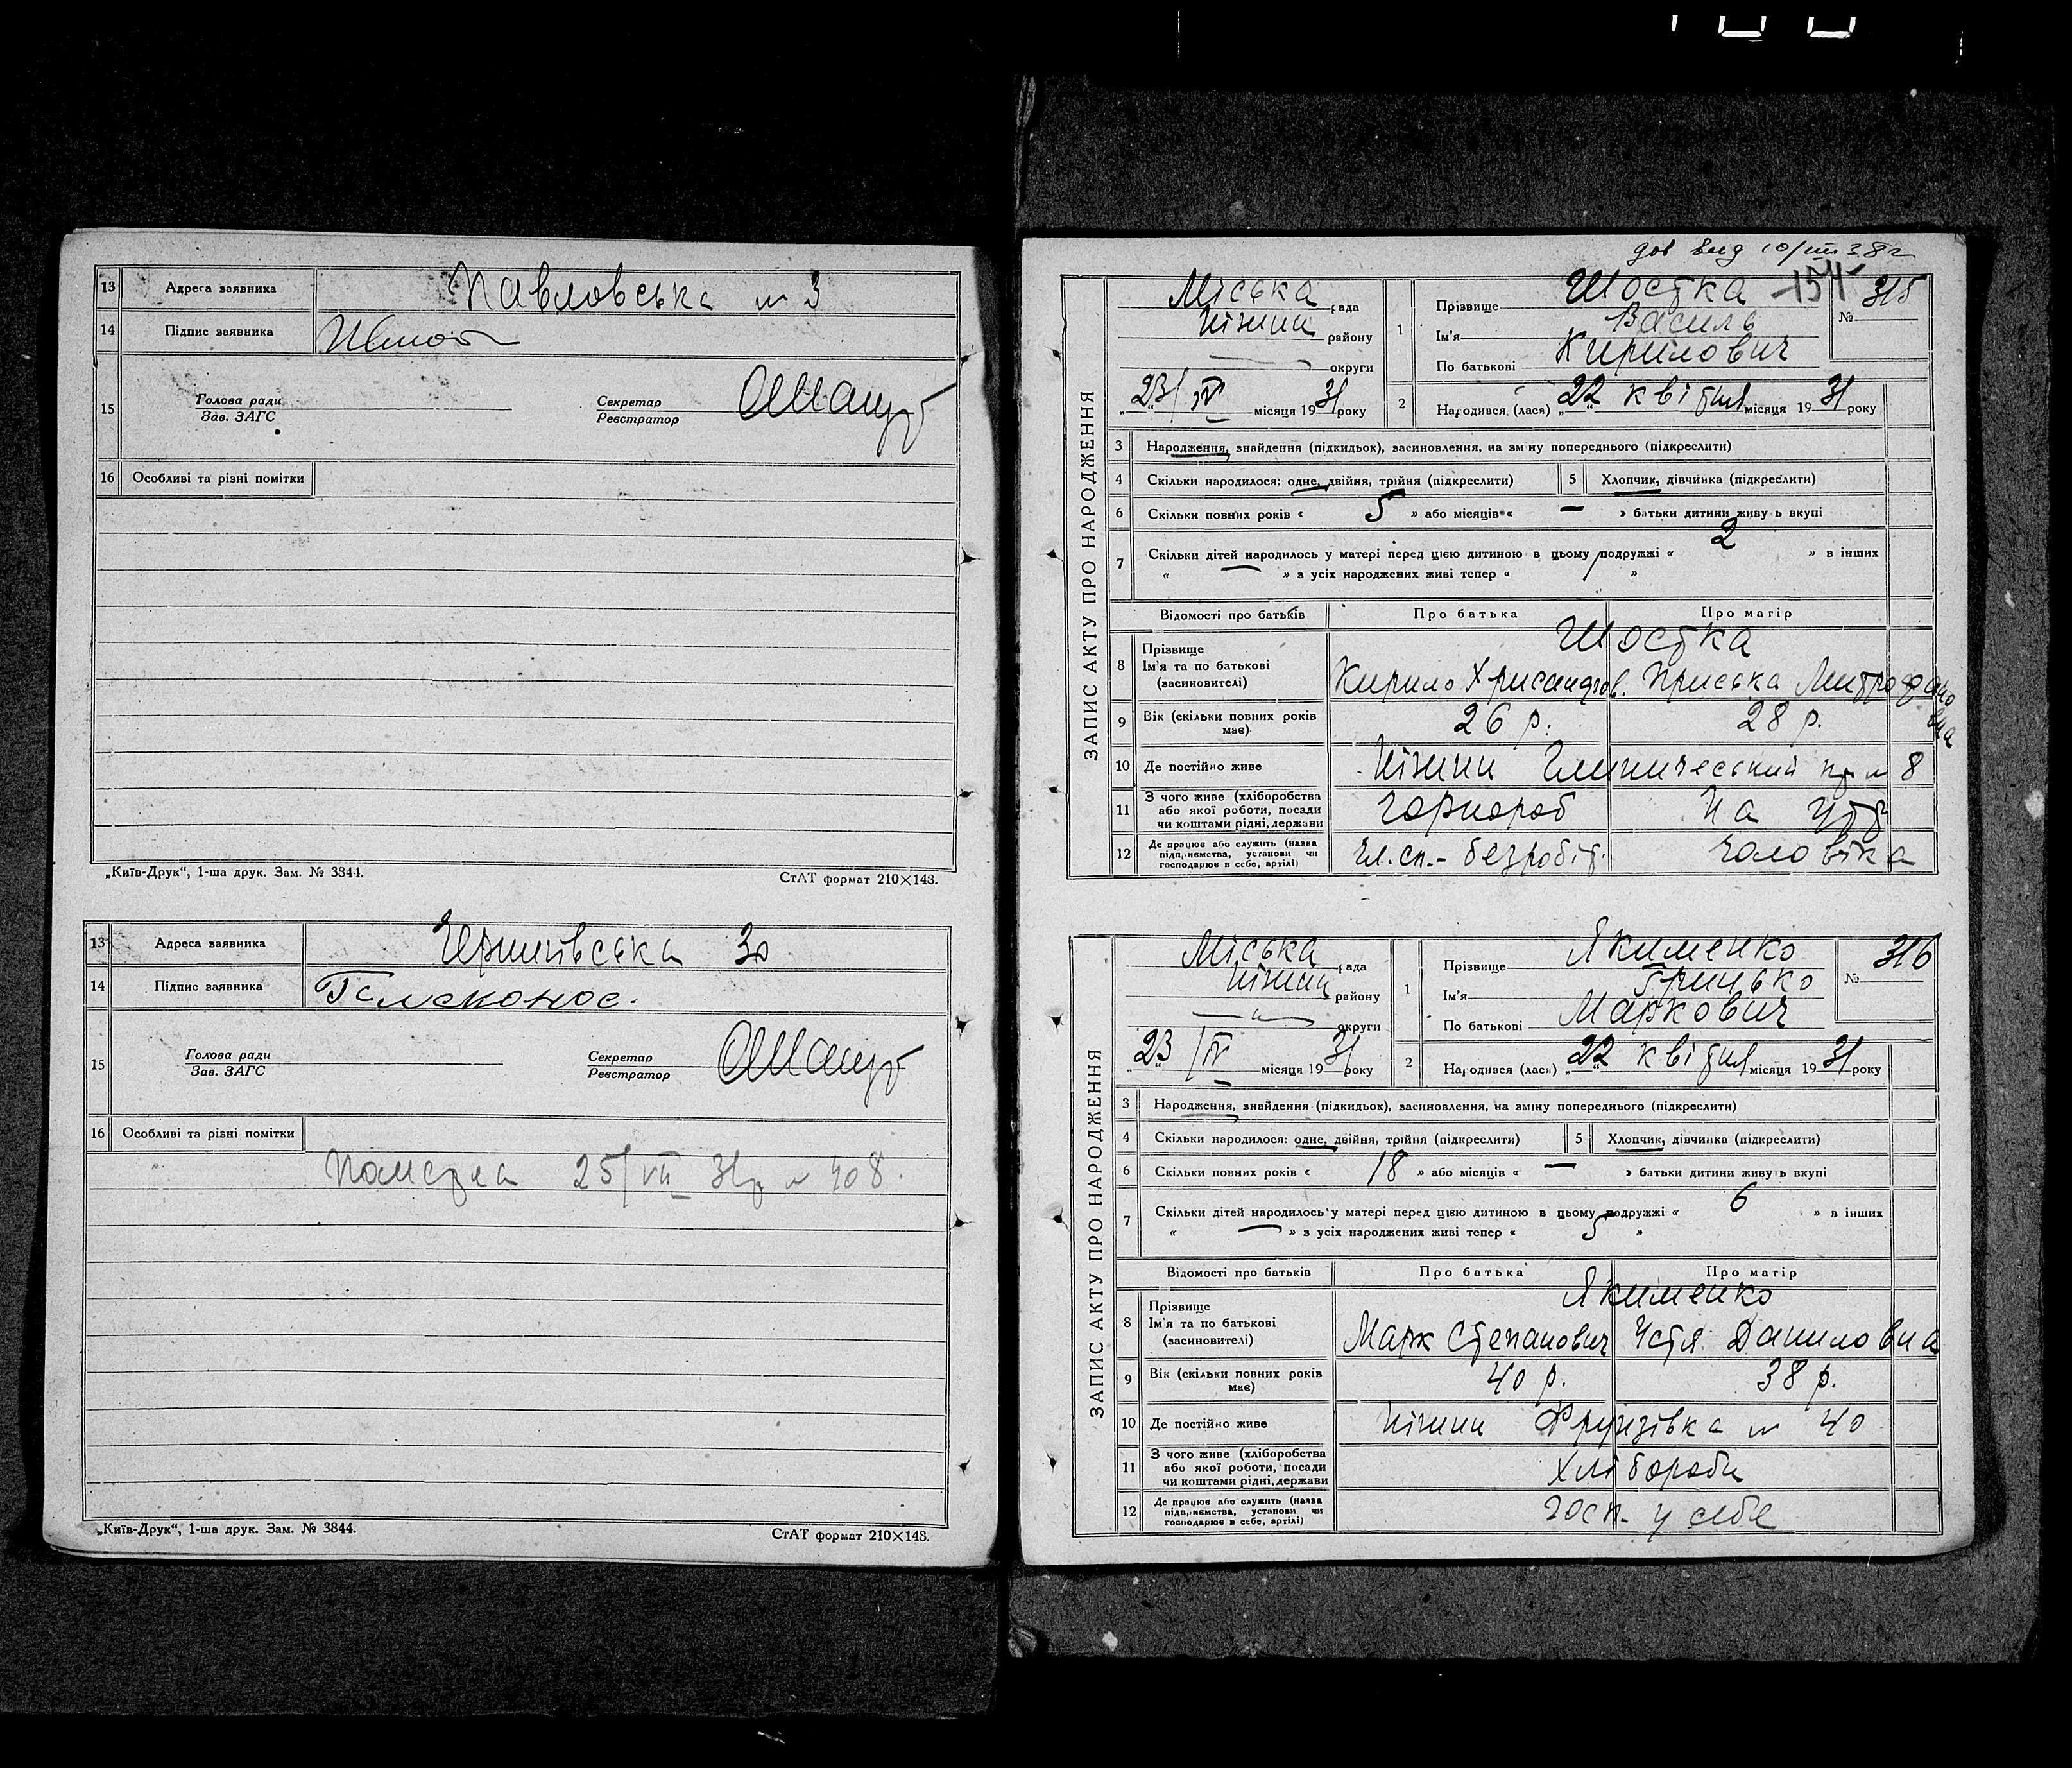 13 Адреса заявника Павловська № 3
14 Підпис заявника
15 Голова ради
Зав. ЗАГС
Секретар
Реєстратор
16 Особливі та різні помітки
„Київ-Друк“, 1-ша друк. Зам. № 3844.
СтАТ формат 210×143.
13 Адреса заявника Чернигівська 30
14 Підпис заявника
15 Голова ради
Зав. ЗАГС
Секретар
Реєстратор
16 Особливі та різні помітки
Померла 25/VII 31р № 408.
„Київ-Друк“, 1-ша друк. Зам. № 3844.
СтАТ формат 210×143.
дов вид 10/VIII 38 г
ЗАПИС АКТУ ПРО НАРОДЖЕННЯ
Міська рада
Ніжин району
округи
„23/IV місяця 1931 року
1 Прізвище Шостка
Ім'я Василь
По батькові Кирилович
154 № 315
2 Народився (лася) „22“ квітня місяця 1931 року
3 Народження, знайдення (підкидьок), засиновлення, на зміну попереднього (підкреслити)
4 Скільки народилося: одне, двійня, трійня (підкреслити)
5 Хлопчик, дівчинка (підкреслити)
6 Скільки повних років « 5 » або місяців « — » батьки дитини живуть вкупі
7 Скільки дітей народилось у матері перед цією дитиною в цьому подружжі « 2 » в інших
« — » з усіх народжених живі тепер « »
Відомості про батьків Про батька Про матір
8 Прізвище Шостка
Ім'я та по батькові
(засиновителі) Кирило Хрисандров. Приська Митрофановна
9 Вік (скільки повних років має) 26 р. 28 р.
10 Де постійно живе Ніжин № 8
11 З чого живе (хліборобства або якої роботи, посади чи коштами рідні, держави Чорнороб На утр
12 Де працює або служить (назва підприємства, установи чи господарює в себе, артілі) Чл.сп.- безробіт. чоловіка
ЗАПИС АКТУ ПРО НАРОДЖЕННЯ
Міська рада
Ніжин району
— „ — округи
„23“/IV місяця 1931 року
1 Прізвище Якименко
Ім'я Грицько
По батькові Маркович
№ 316
2 Народився (лася) „22“ квітня місяця 1931 року
3 Народження, знайдення (підкидьок), засиновлення, на зміну попереднього (підкреслити)
4 Скільки народилося: одне, двійня, трійня (підкреслити)
5 Хлопчик, дівчинка (підкреслити)
6 Скільки повних років « 18 » або місяців « — » батьки дитини живуть вкупі
7 Скільки дітей народилось у матері перед цією дитиною в цьому подружжі « 6 » в інших
« — » з усіх народжених живі тепер « 5 »
Відомості про батьків Про батька Про матір
8 Прізвище Якименко
Ім'я та по батькові
(засиновителі) Марк Степанович Устя Даниловна
9 Вік (скільки повних років має) 40 р. 38 р.
10 Де постійно живе Ніжин Фрунзівка № 40
11 З чого живе (хліборобства або якої роботи, посади чи коштами рідні, держави Хлібороби
12 Де працює або служить (назва підприємства, установи чи господарює в себе, артілі) госп. у себе